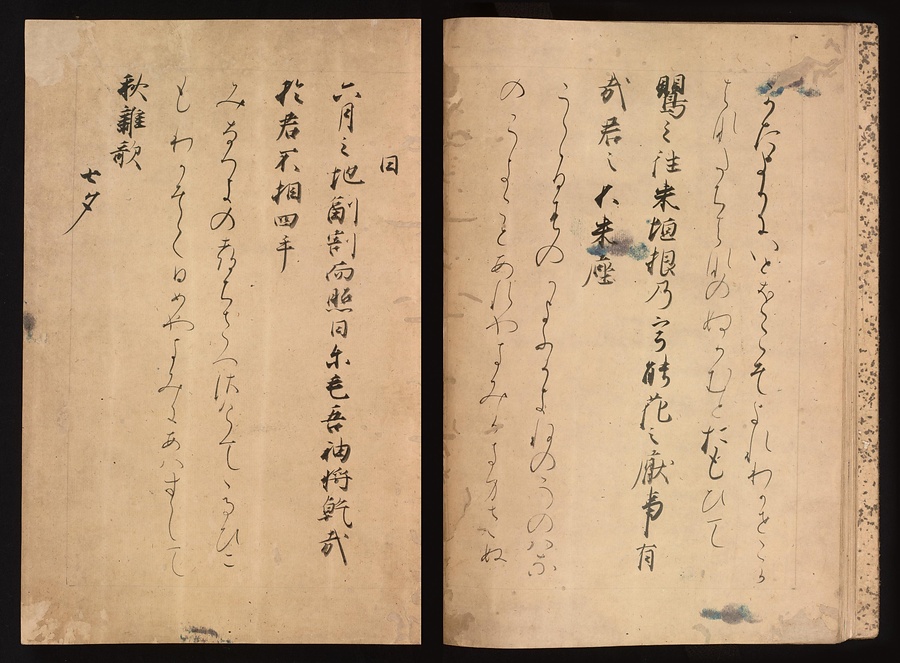 かたよりにいとをこそよれわかせこか
はなたちはなのぬかむとおもひて
鸎之往来垣根乃宇能花之厭事有
哉君之不来座
うくひすのかよふかきねのうのはな
のうきことあれやきみかきまさぬ
日
六月之地副割而照日尓毛吾袖将乾哉
於君不相四手
みなつきのつちさへさけててるひに
もわかそてひめやきみにあはすして
秋雜歌
七夕